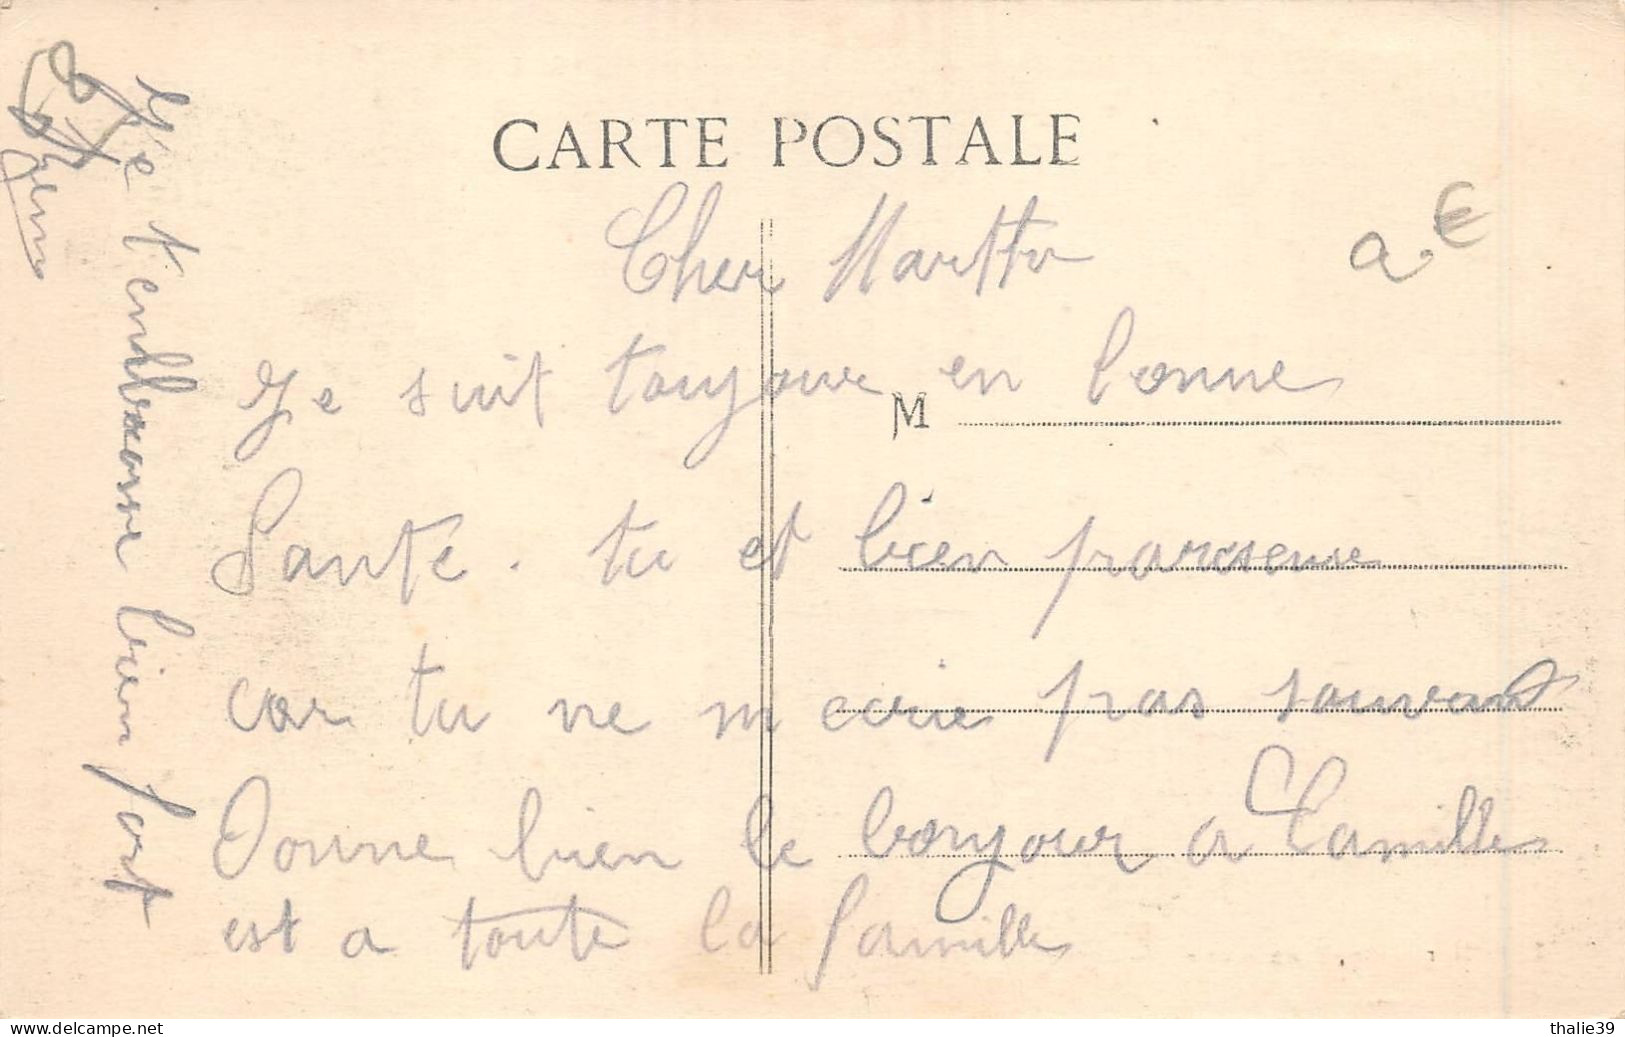 CARTE POSTALE
Cher Martha
Je suit toujour en bonne
M
Santé. tu et bien paraseuse
car tu ne m ecrie pas souvant
Donne bien le bonjour a Camille
est a toute la famille
Je t'embrasse bien fort
a.€
thalie39
www.delcampe.net